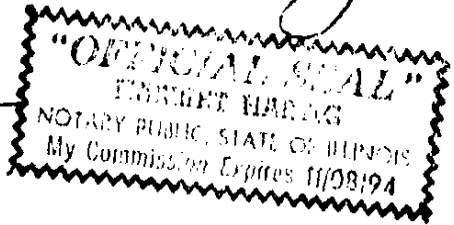 "OFFICIAL SEAL"
NOTARY PUBLIC, STATE OF ILLINOIS
My Commission Expires 11/08/94